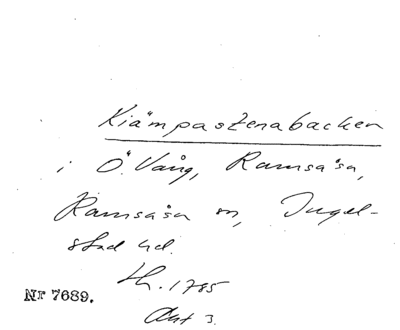 Kiämpastenabacken
i Ö. Vång, Ramsåsa,
Ramsåsa sn, Ingel-
stad hd.
th. 1785
Akt 3.
Nr 7689.